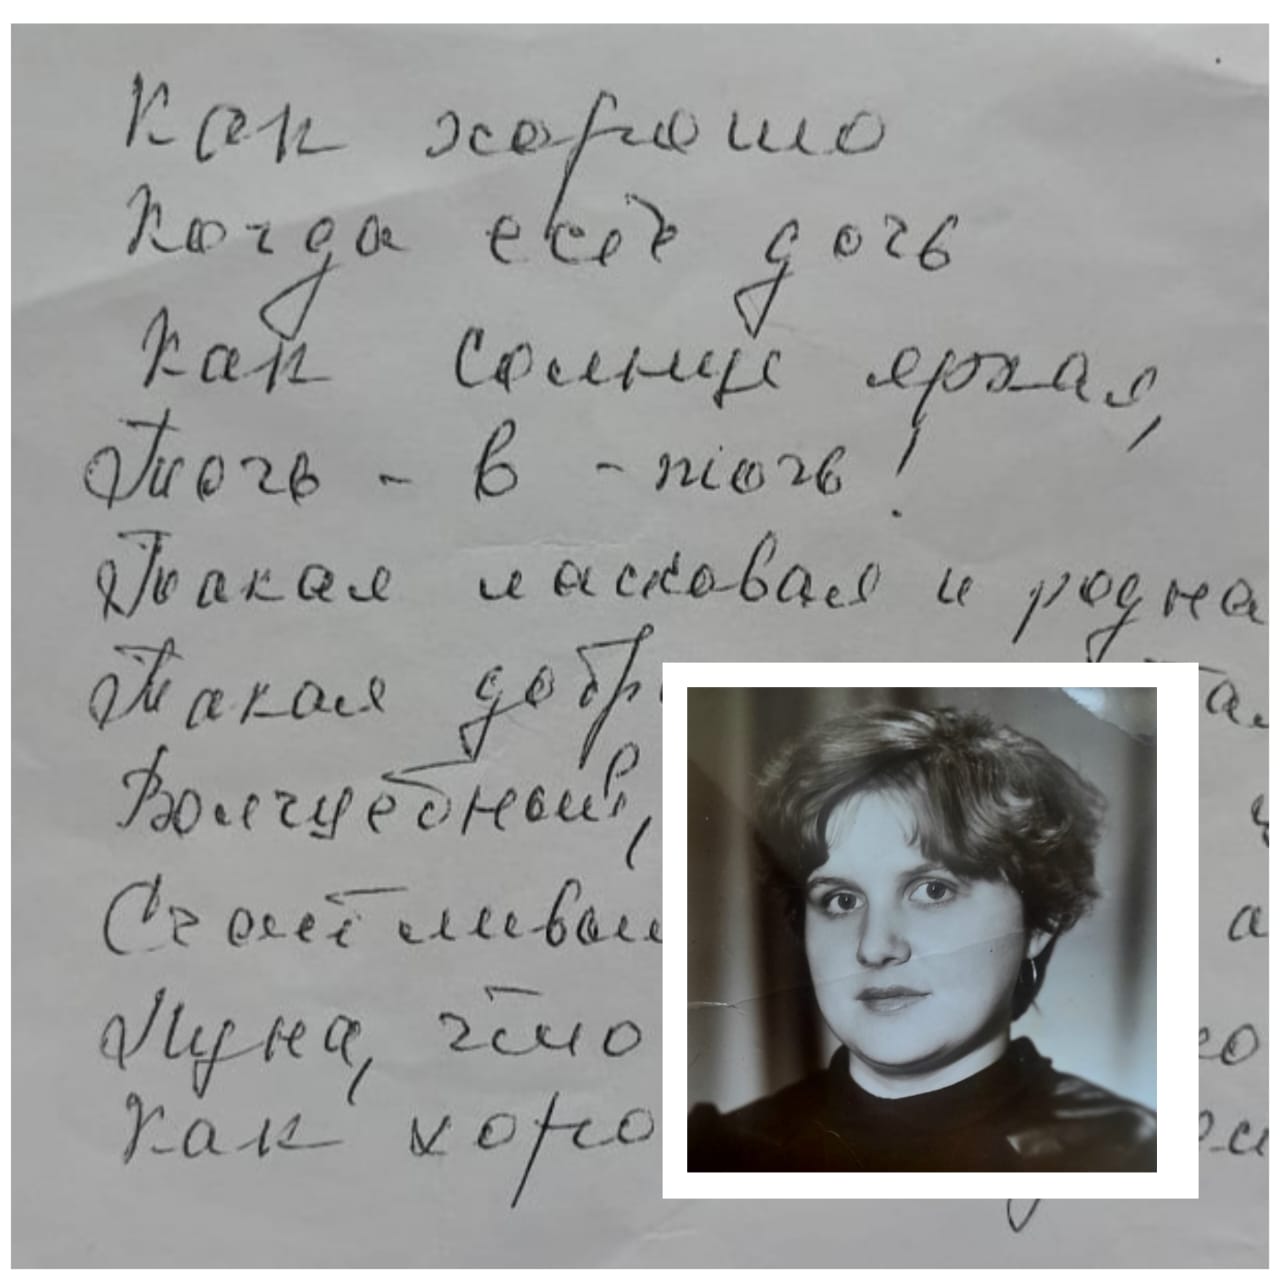 Как хорошо
Когда есть дочь
Как солнце яркая,
Точь - в - точь!
Такая ласковая и родна
Такая добр
Волчебный,
Счастливы
Луна, что
Как хоро